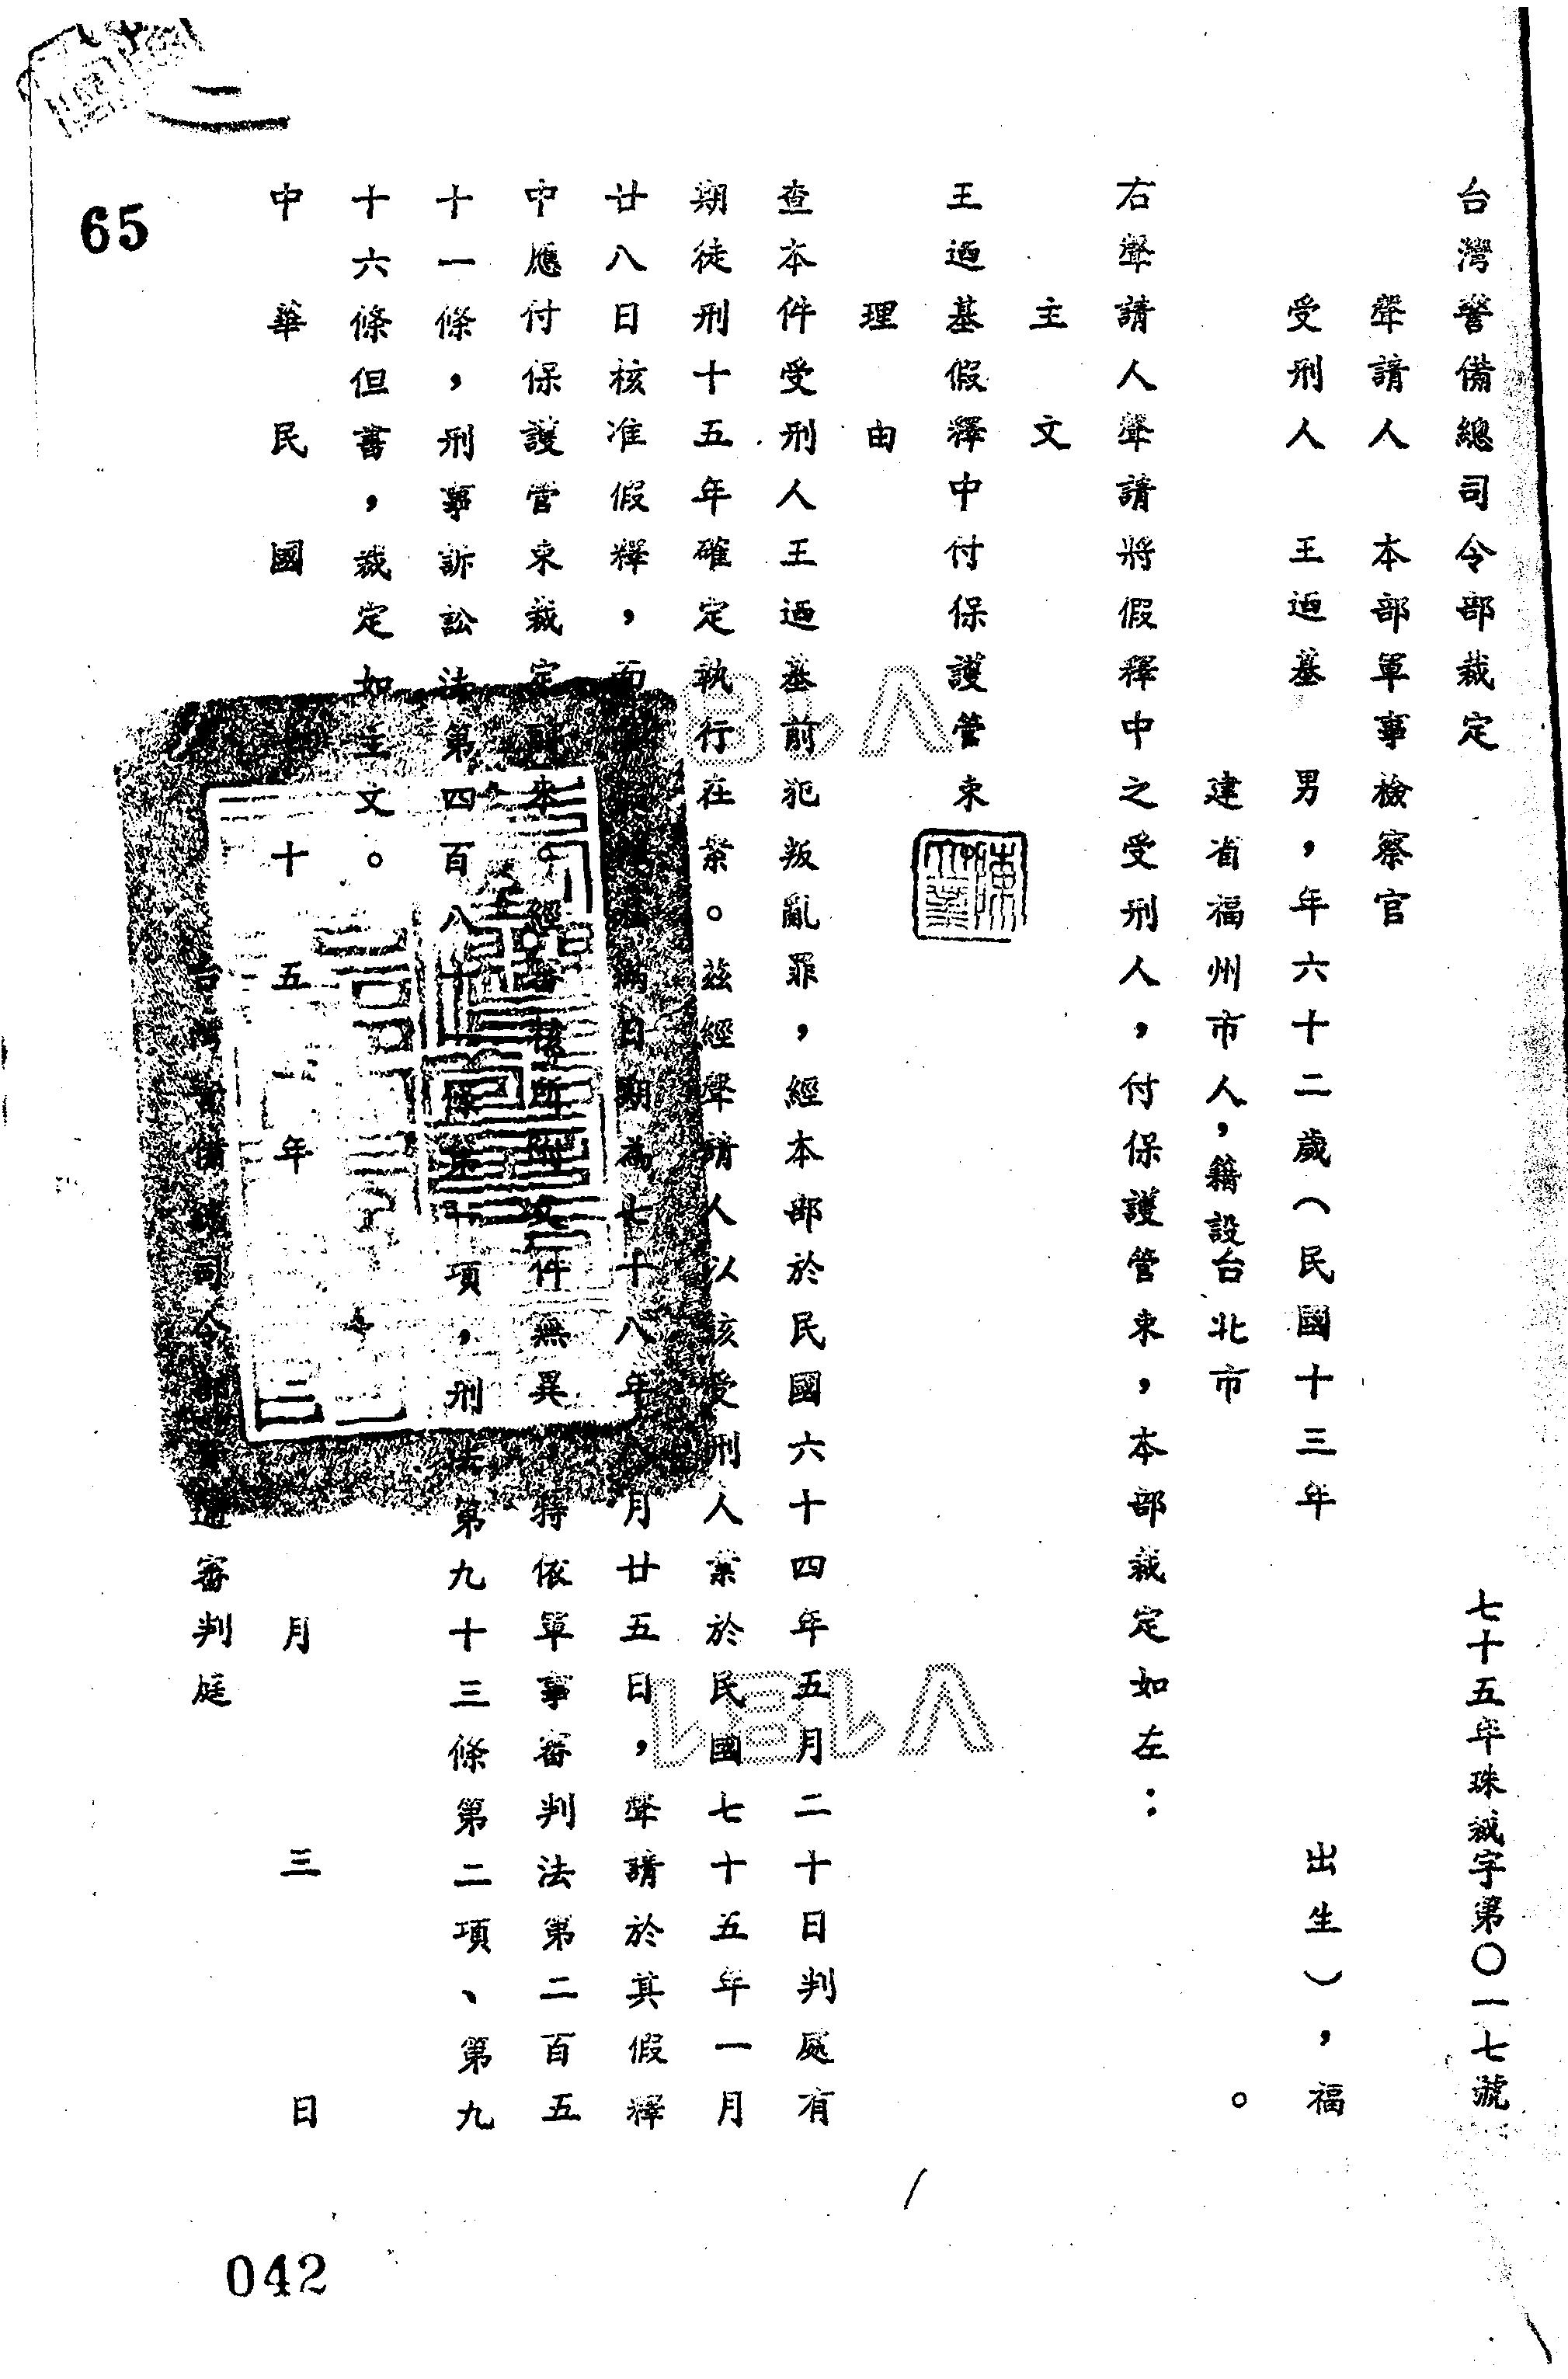 台灣警備總司令部裁定 七十五年珠裁字第〇一七號
聲請人 本部軍事檢察官
受刑人 王迺基 男,年六十二歲(民國十三年 出生),福
建省福州市人,籍設台北市 。
右聲請人聲請將假釋中之受刑人,付保護管束,本部裁定如左:
主文
王迺基假釋中付保護管束
理由
查本件受刑人王迺基前犯叛亂罪,經本部於民國六十四年五月二十日判處有
期徒刑十五年確定執行在案。茲經聲請人以該受刑人業於民國七十五年一月
廿八日核准假釋,而 滿日期為七十八年 月廿五日,聲請於其假釋
中應付保護管束裁定 來。經審核所附文件無異 特依軍事審判法第二百五
十一條,刑事訴訟法第四百八十一條第一項,刑法第九十三條第二項、第九
十六條但書,裁定如主文。
中華民國 十五年二月三日
台灣警備總司令部普通審判庭
65
042